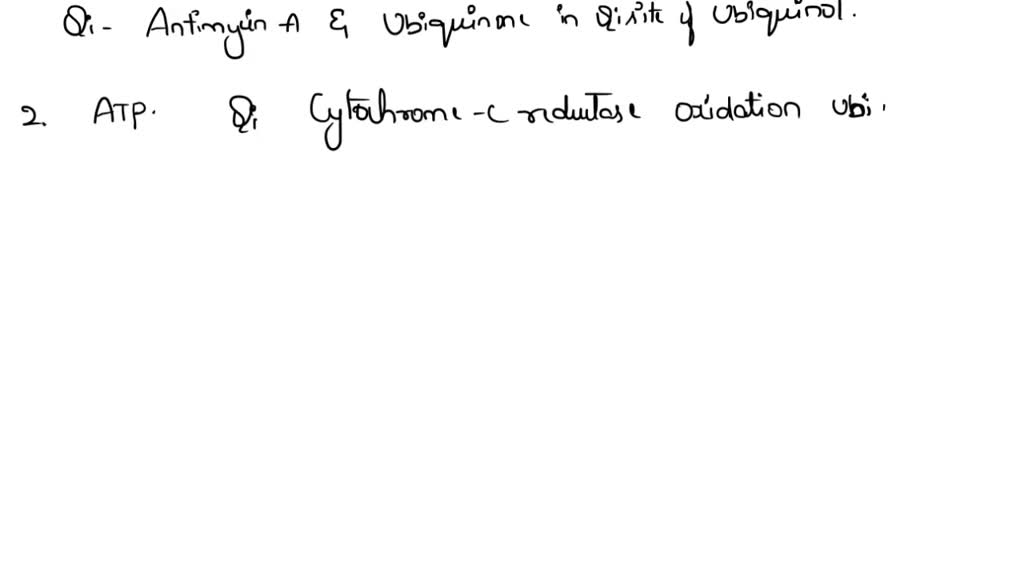 Qi- Antimycin A & Ubiquinone in Qi site of Ubiquinol.
2. ATP. Qi Cytochrome-c reductase oxidation ubi.